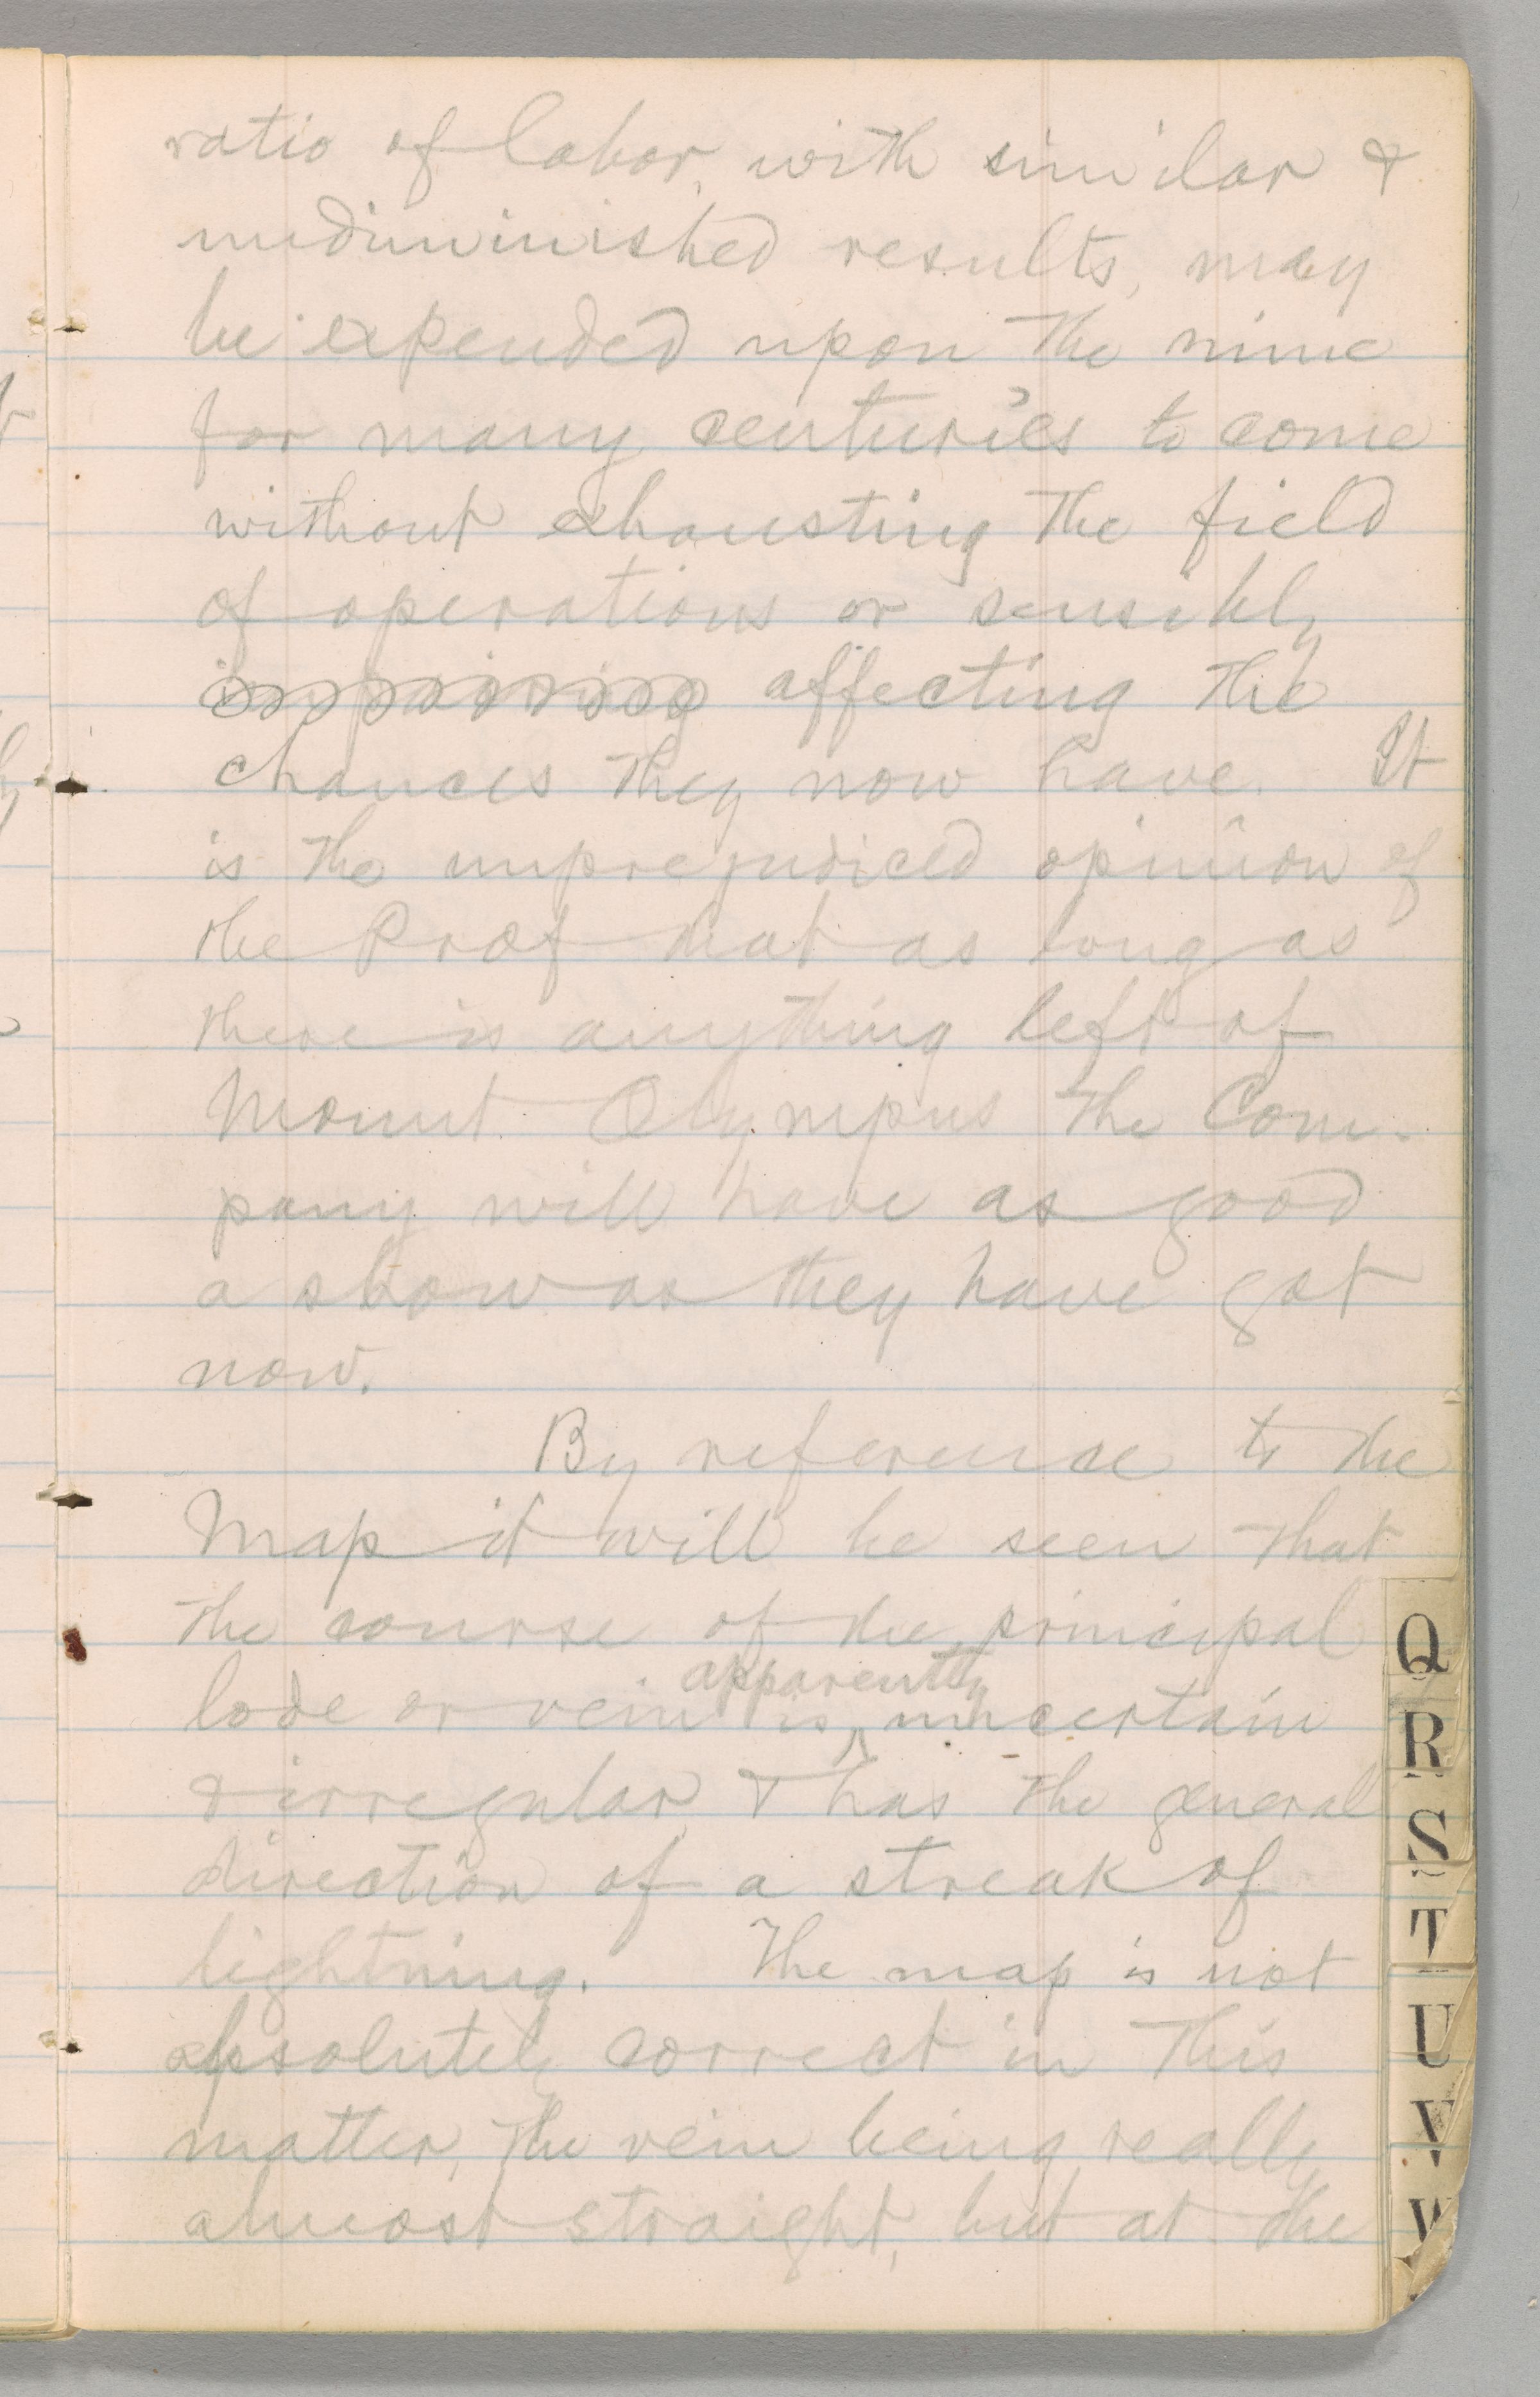 ratio of labor, with similar &
undiminished results, may
be expended upon the mine
for many centuries to come
without exhausting the field
of operations or sensibly
impairing affecting the
chances they now have. It
is the unprejudiced opinion of
the Prof that as long as
there is anything left of
Mount Olympus the Com-
pany will have as good
a show as they have got
now.
By reference to the
Map it will be seen that
the course of the principal
apparently
lode or vein is ^ uncertain
& irregular, & has the general
direction of a streak of
lightning. The map is not
absolutely correct in this
matter, the vein being really
almost straight, but at the
Q
R
S
T
U
V
W